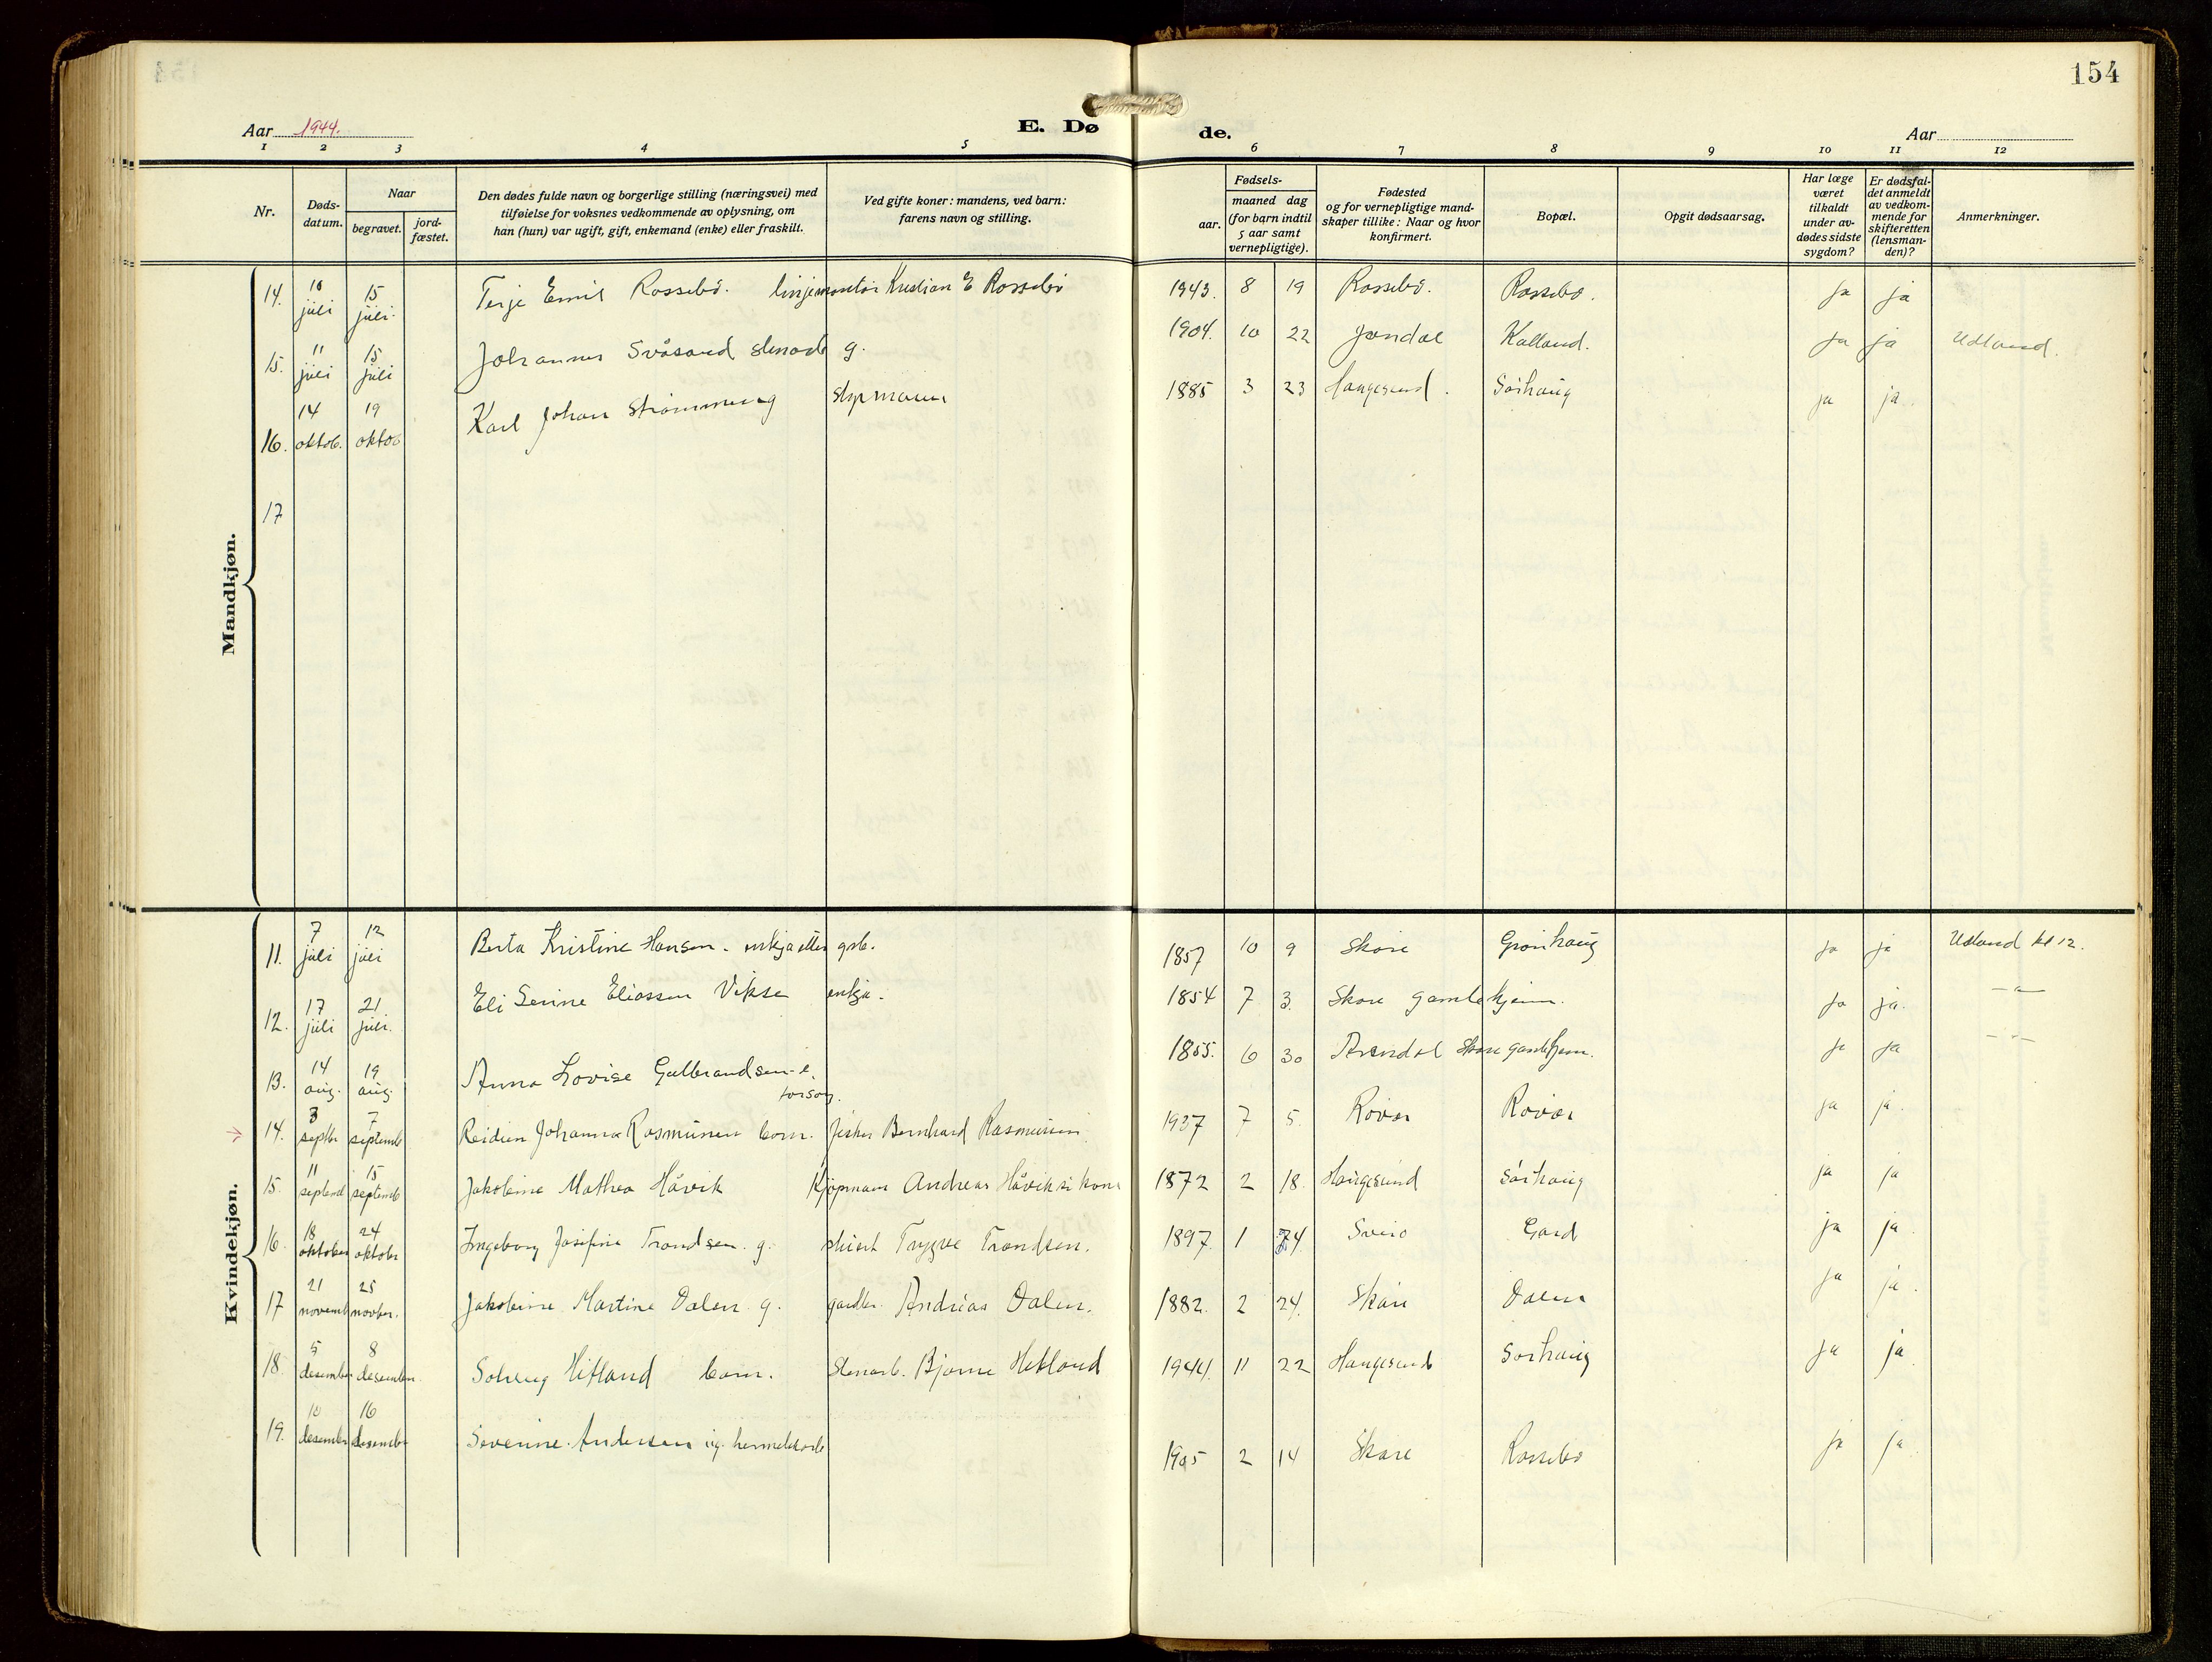 154
Aar 1944.
E. Dø de.
Aar
1 2 3 4 5 6 7 8 9 10 11 12
Nr.
Døds-
datum.
Naar
begravet.
jord-
fæstet.
Den dødes fulde navn og borgerlige stilling (næringsvei) med
tilføielse for voksnes vedkommende av oplysning, om
han (hun) var ugift, gift, enkemand (enke) eller fraskilt.
Ved gifte koner: mandens, ved barn:
farens navn og stilling.
Fødsels-
aar.
maaned dag
(for barn indtil
5 aar samt
vernepligtige).
Fødested
og for vernepligtige mand-
skaper tillike: Naar og hvor
konfirmert.
Bopæl.
Opgit dødsaarsag.
Har læge
været
tilkaldt
under av-
dødes sidste
sygdom?
Er dødsfal-
det anmeldt
av vedkom-
mende for
skifteretten
(lensman-
den)?
Anmerkninger.
Mandkjøn.
14. 10 juli 15 juli. Terje Emil Rossebö. linjemontör Kristian E Rossebö 1943. 8 19 Rossebö. Rossebö. ja ja
15. 11 juli 15 juli Johannes Svåsand stenarb g. 1904. 10 22 Jondal Kalland. ja ja Udland.
16. 14 oktob. 19 oktob Karl Johan Strömmeng skipmann 1885 3 23 Haugesund. Sörhaug ja ja.
17
Kvindekjøn.
11. 7 juli 12 juli Berta Kristine Hansen. enkja etter grb. 1857 10 9 Skåre Grönhaug ja ja Udland kl 12.
12. 17 juli 21 juli. Eli Serine Eliassen Vikse enkja. 1854 7 3. Skåre gamlehjem. ja ja. — " —
13. 14 aug. 19 aug. Anna Lovise Gulbrandsen e. forsörg. 1855. 6 30 Arendal Skåre gamlehjem. ja ja — " —
14. 3 septbr 7 septemb Reidun Johanna Rasmussen barn. fisker Bernhard Rasmussen 1937 7 5. Rövær Rövær ja ja.
15. 11 septemb 15 septemb Jakobine Mathea Håvik Kjöpmann Andreas Håvik si kone 1872 2 18. Haugesund Sörhaug ja ja
16. 18 oktober 24 oktobr Ingeborg Josefine Trondsen. g. Trygve Trondsen. 1897. 1 24 Sveio Gard ja ja
17 21 novemb 25 novbr. Jakobine Martine Dalen g. gardbr. Andreas Dalen. 1882. 2 24. Skåre Dalen ja ja.
18. 5 desember 8 desember. Solveig Hetland barn. Stenarb. Bjarne Hetland 1944. 11 22 Haugesund Sörhaug ja ja
19. 10 desember 16 desember Severine Andersen ug. hermetikkarb 1905 2 14 Skåre Rossebö ja ja